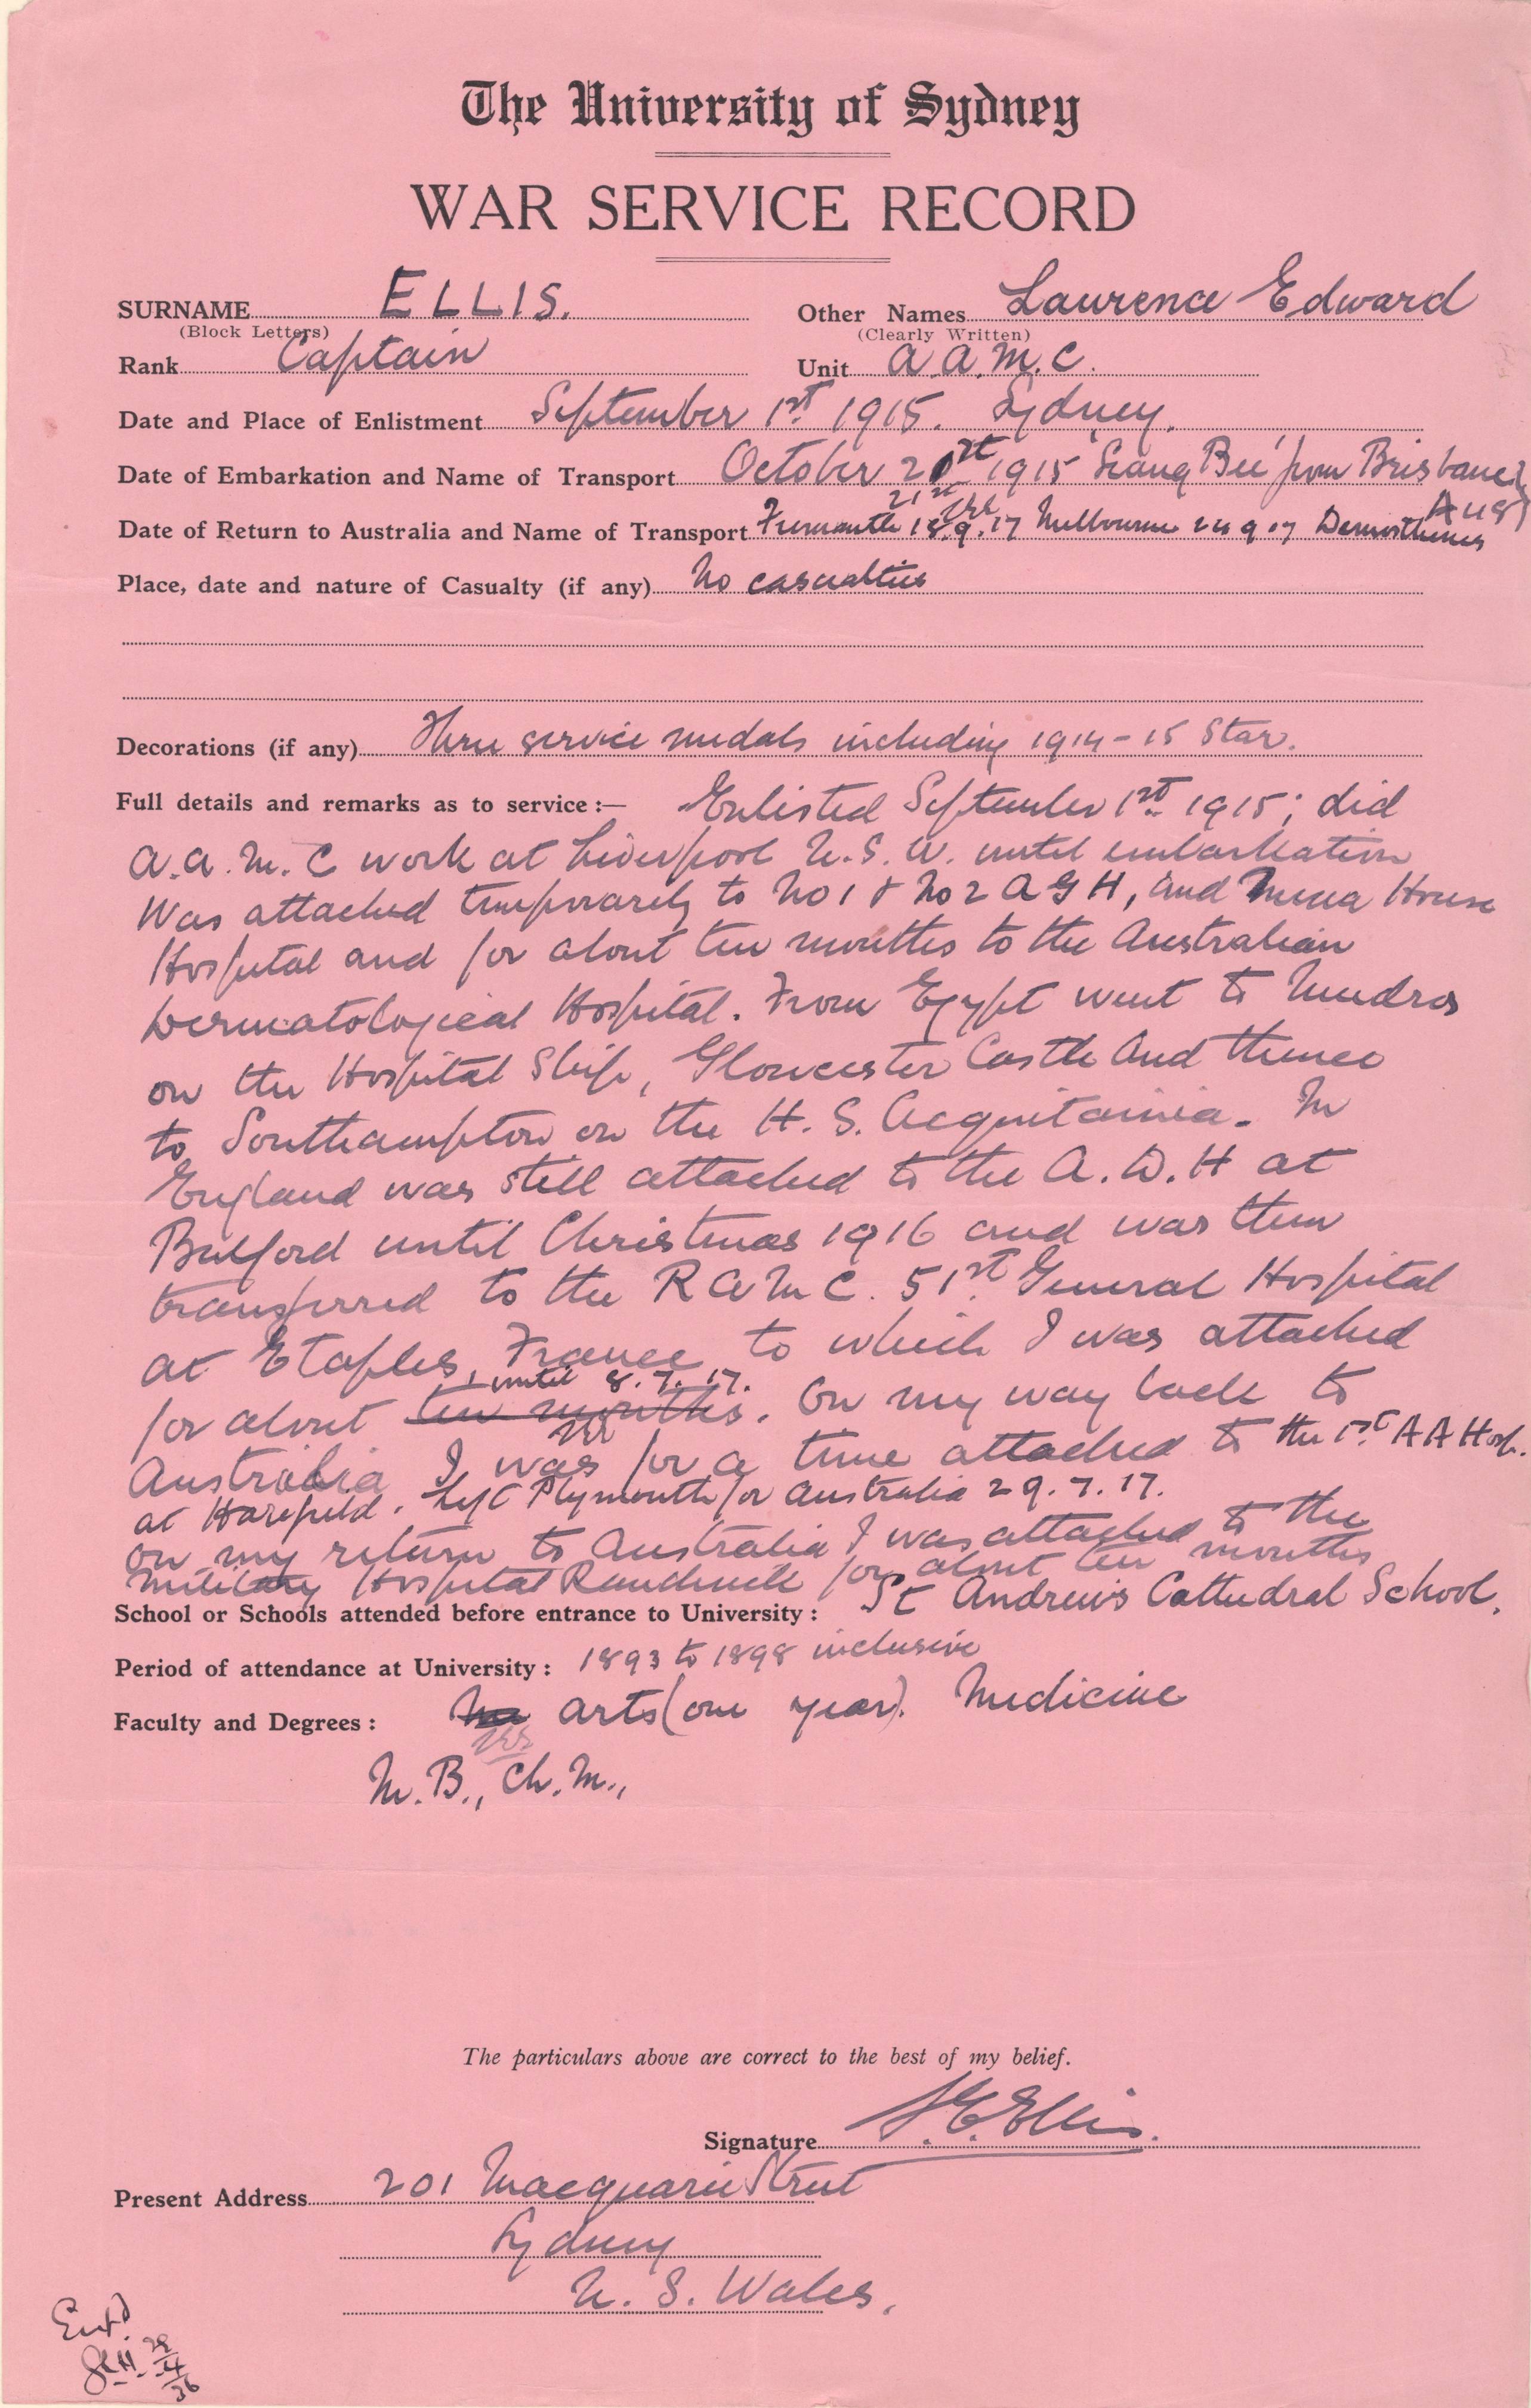 The University of Sydney
WAR SERVICE RECORD
SURNAME ELLIS. Other Names Laurence Edward
(Block Letters) (Clearly Written)
Rank Captain Unit A.A.M.C.
Date and Place of Enlistment September 1st 1915. Sydney.
Date of Embarkation and Name of Transport October 20st 1915 'Seang Bee' from Brisbane
21st
Date of Return to Australia and Name of Transport Fremantle 18.9.17 Melbourne 24 9 17 Demosthenes
Place, date and nature of Casualty (if any) No casualties
Decorations (if any) Three service medals including 1914-15 Star.
Full details and remarks as to service:— Enlisted September 1st 1915; did
A.A.M.C work at Liverpool N.S.W. until embarkation
Was attached temporarily to No 1 & No 2 A G H, and Mena House
Hospital and for about ten months to the Australian
Dermatological Hospital. From Egypt went to Mudros
on the Hospital Ship, Gloucester Castle and thence
to Southampton on the H.S. Acquitainia. In
England was still attached to the A.D.H at
Bulford until Christmas 1916 and was then
transferred to the R A M C. 51st General Hospital
at Etaples, France to which I was attached
until 8.7.17.
for about ten months. On my way back to
Australia I was for a time attached to the 1st A A Hosp.
at Harefield. Left Plymouth for Australia 29.7.17.
on my return to Australia I was attached to the
Military Hospital Randwick for about ten months
School or Schools attended before entrance to University: St Andrew's Cathedral School.
Period of attendance at University: 1893 to 1898 inclusive
Faculty and Degrees: Arts (one year). Medicine
M.B., Ch.M.,
The particulars above are correct to the best of my belief.
Signature L.E.Ellis.
Present Address 201 Macquarie Street
Sydney
N.S. Wales.
Ent'd
28/4/36